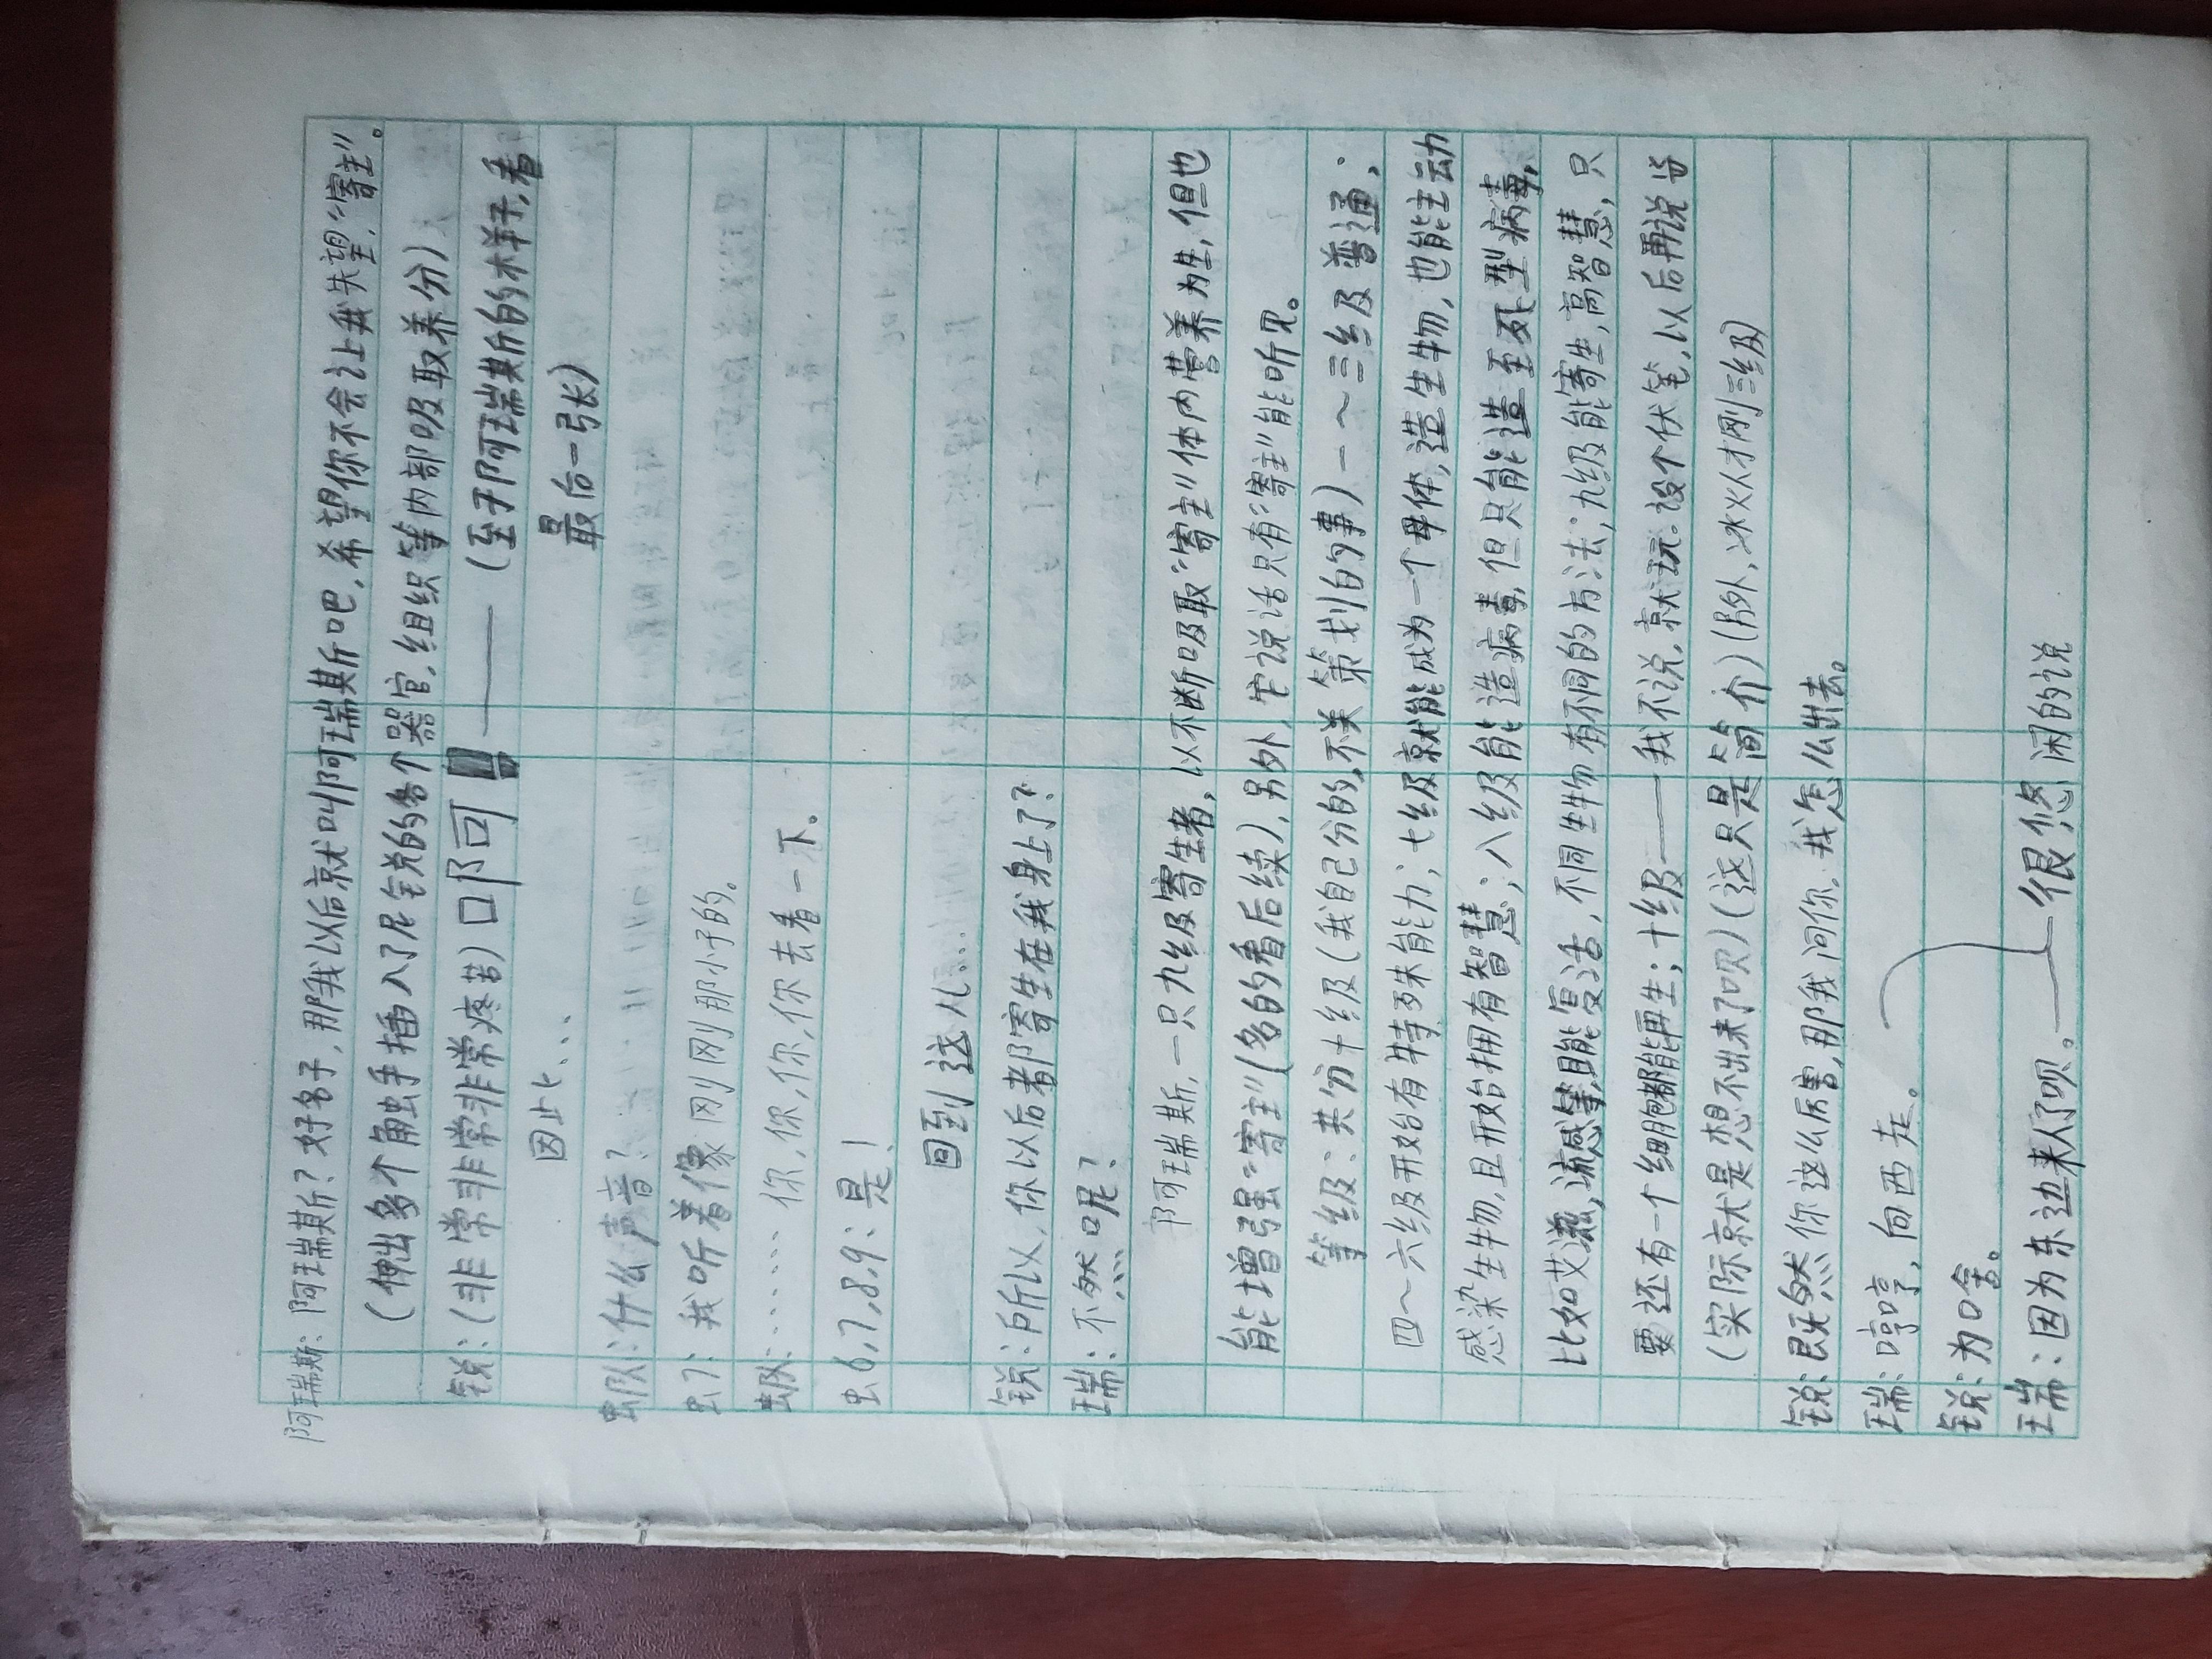 阿瑞斯：阿瑞其斯？好名子，那我以后就叫阿瑞其斯吧，希望你不会让我失望，“寄主”。
（伸出多个触手插入了尼锐的各个器官，组织等内部吸取养分）
锐：（非常非常非常疼苦）口阿 —— （至于阿瑞其斯的样子，看
最后一张）
因此、、、
虫队：什么声音？
虫7：我听着像刚刚那小子的。
虫队：……你，你，你，你去看一下。
虫6,7,8,9：是！
回到这儿…
锐：所以，你以后都寄生在我身上了？
瑞：不然呢？
阿瑞斯，一只九级寄生者，以不断吸取“寄主”体内营养为生，但也
能增强“寄主”（多的看后续），另外，它说话只有“寄主”能听见。
等级：共分十级（我自己分的，不关策划的事）一～三级普通；
四～六级开始有特殊能力；七级就能成为一个母体，造生物，也能主动
感染生物，且开始拥有智慧；八级能造病毒，但只能造至死型病毒，
比如艾滋，流感等，且能复活，不同生物有不同的方法；九级能寄生，高智慧，只
要还有一个细胞都能再生；十级——我不说，就玩。设个伏笔，以后再说当
（实际就是想不出来了呗）（这只是简介）（另外，冰火人才刚三级）
锐：既然你这么厉害，那我问你，我怎么出去。
瑞：哼哼，向西走。
锐：为啥。
瑞：因为东边来人了呗。——很悠闲的说